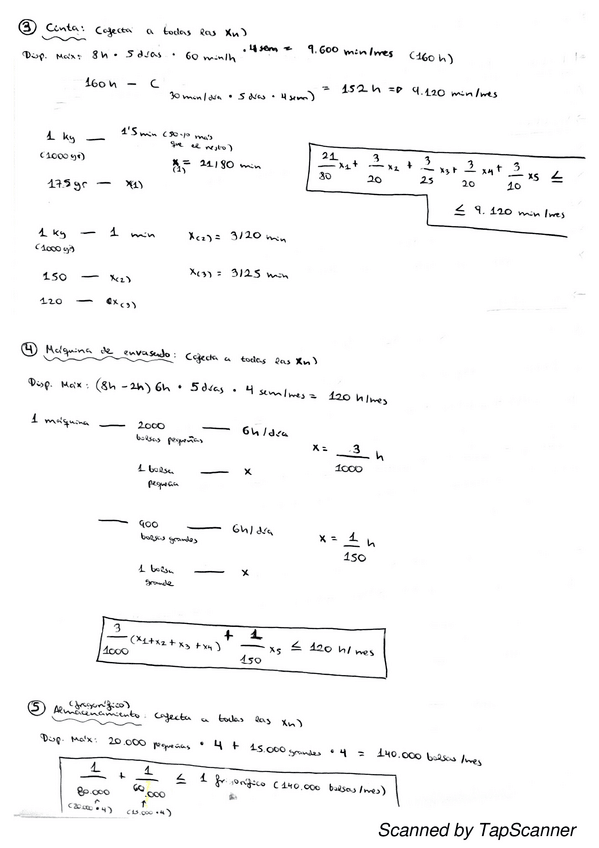 ③ Cinta: (afecta a todas las Xn)
Disp. Máx: 8h · 5 días · 60 min/h · 4 sem = 9.600 min/mes (160 h)
160 h − ( 30 min/día · 5 días · 4 sem) = 152 h => 9.120 min/mes
1 kg — 1'5 min (50% más que el resto)
(1000 gr)
X(1) = 21/80 min
175 gr — X(1)
21/80 x1 + 3/20 x2 + 3/25 x3 + 3/20 x4 + 3/10 x5 ≤
≤ 9.120 min/mes
1 kg — 1 min X(2) = 3/20 min
(1000 gr)
150 — X(2) X(3) = 3/25 min
120 — X(3)
④ Máquina de envasado: (afecta a todas las Xn)
Disp. Máx: (8h − 2h) 6h · 5 días · 4 sem/mes = 120 h/mes
1 máquina — 2000 bolsas pequeñas — 6h/día
x = 3/1000 h
1 bolsa pequeña — x
— 900 bolsas grandes — 6h/día x = 1/150 h
1 bolsa grande — x
3/1000 (x1+x2+x3+x4) + 1/150 x5 ≤ 120 h/mes
(frigorífico)
⑤ Almacenamiento: (afecta a todas las Xn)
Disp. Máx: 20.000 pequeñas · 4 + 15.000 grandes · 4 = 140.000 bolsas/mes
1/80.000 + 1/60.000 ≤ 1 frigorífico (140.000 bolsas/mes)
(20.000 · 4) (15.000 · 4)
Scanned by TapScanner